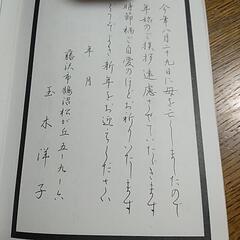 今年八月二十九日に母を亡くしましたので
年始のご挨拶遠慮させていただきます
時節柄ご自愛のほどお祈りいたします
どうぞよき新年をお迎えください
年 月
藤沢市鵠沼松が丘五ー九ー六
玉木洋子